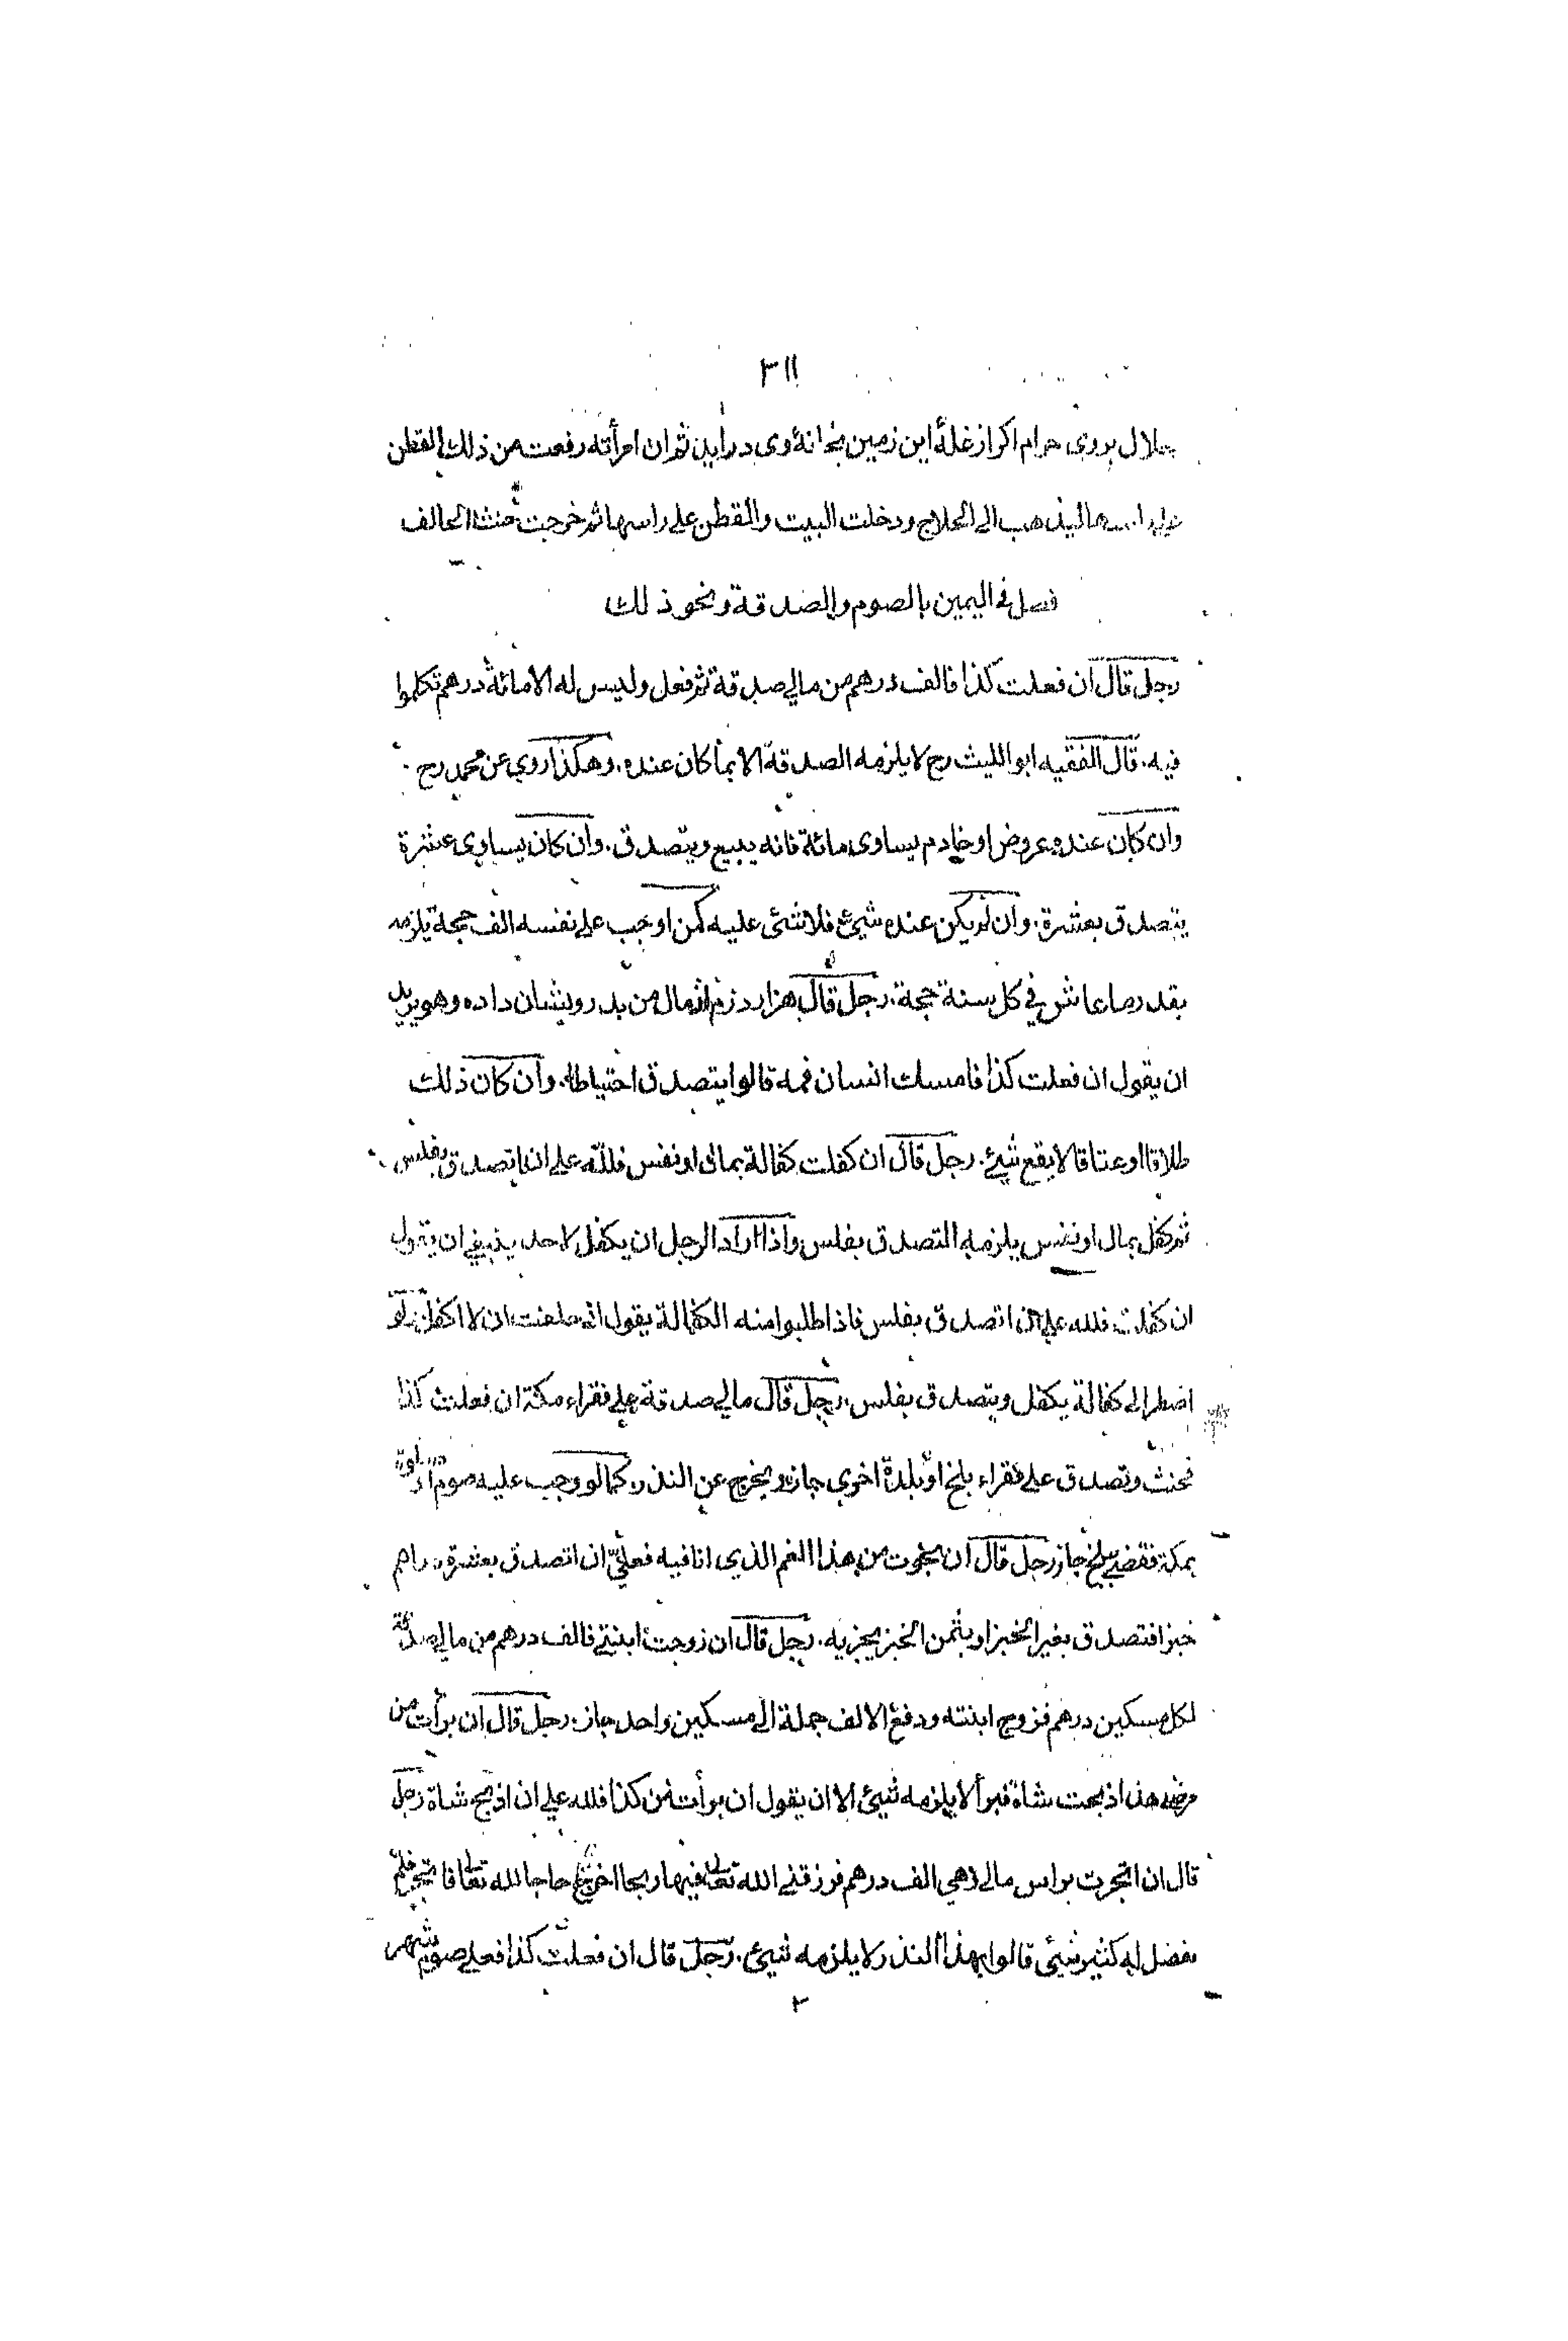 ٣١١
حلال بروى حرام اكر از غلهٔ اين زمين بخانهٔ وى درايد ثم ان امرأته رفعت من ذلك القطن
ليذهب الى الحلاج ودخلت البيت والقطن على راسها ثم خرجت حنث الحالف
فصل في اليمين بالصوم والصدقة ونحو ذلك
رجل قال ان فعلت كذا فالف درهم من مالي صدقة ثم فعل وليس له الا مائة درهم تكلموا
فيه. قال الفقيه ابو الليث رح لا يلزمه الصدقة الا بما كان عنده. وهكذا روي عن محمد رح
وان كان عنده عروض او خادم يساوى مائة فانه يبيع ويتصدق. وان كان يساوى عشرة
يتصدق بعشرة. وان لم يكن عنده شيئ فلا شئ عليه كمن اوجب على نفسه الف حجة يلزمه
بقدر ما عاش في كل سنة حجة. رجل قال هزار درم از مال من بدرويشان داده وهو يريد
ان يقول ان فعلت كذا فامسك انسان فمه قالوا يتصدق احتياطا. وان كان ذلك
طلاقا او عتاقا لا يقع شيئ. رجل قال ان كفلت كفالة بمال او نفس فللّه علي ان اتصدق بفلس
ثم كفل بمال او نفس يلزمه التصدق بفلس واذا اراد الرجل ان يكفل لاحد ينبغي ان يقول
ان كفلت فلله علي ان اتصدق بفلس فاذا طلبوا منه الكفالة يقول اني حلفت ان لا اكفل لو
اضطر الى كفالة يكفل ويتصدق بفلس. رجل قال مالي صدقة على فقراء مكة ان فعلت كذا
فحنث وتصدق على فقراء بلخ او بلدة اخرى جاز ويخرج عن النذر كما لو وجب عليه صوم او صلوة
بمكة فقضى ببلخ جاز رجل قال ان نجوت من هذا الغم الذي انا فيه فعليّ ان اتصدق بعشرة دراهم
خبزا فتصدق بغير الخبز او بثمن الخبز يجزيه. رجل قال ان زوجت ابنتي فالف درهم من مالي صدقة
لكل مسكين درهم فزوج ابنته ودفع الالف جملة الى مسكين واحد جاز. رجل قال ان برأت من
مرضى هذا ذبحت شاة فبرأ لا يلزمه شيئ الا ان يقول ان برأت من كذا فلله علي ان اذبح شاة رجل
قال ان اتجرت براس مالي وهي الف درهم فرزقني الله تعالى فيها ربحا اخرج حاجا لله تعالى فاتجر فلم
يفضل له كثير شيئ قالوا بهذا النذر لا يلزمه شيئ. رجل قال ان فعلت كذا فعلي صوم شهر
٢